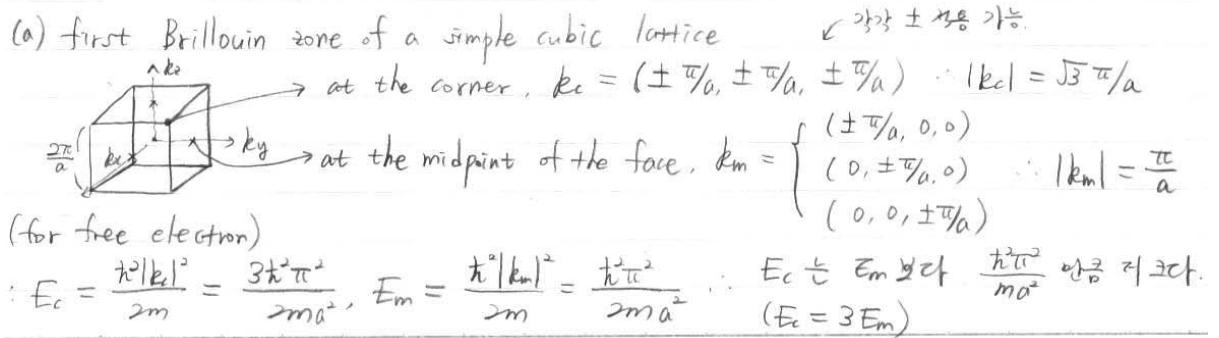 (a) first Brillouin zone of a simple cubic lattice
↙ 각각 ± 적용 가능.
kz
→ at the corner, kc = (± π/a, ± π/a, ± π/a) ∴ |kc| = √3 π/a
2π/a
kx
ky
→ at the midpoint of the face, km = { (± π/a, 0, 0)
(0, ± π/a, 0) ∴ |km| = π/a
(0, 0, ± π/a)
(for free electron)
: Ec = ħ²|kc|²/2m = 3ħ²π²/2ma², Em = ħ²|km|²/2m = ħ²π²/2ma² ∴ Ec 는 Em 보다 ħ²π²/ma² 만큼 더 크다.
(Ec = 3Em)